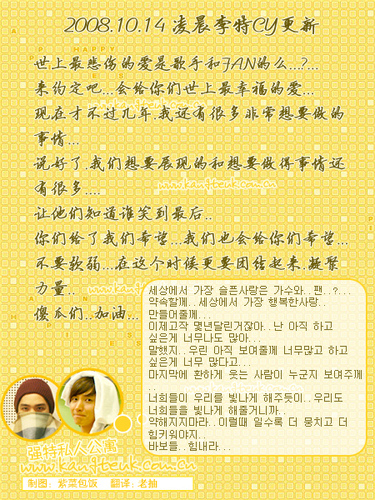 2008.10.14 凌晨李特CY更新
世上最悲伤的爱是歌手和FAN的么...?...
来约定吧...会给你们世上最幸福的爱...
现在才不过几年.我还有很多非常想要做的
事情...
说好了.我们想要展现的和想要做得事情还
有很多....
让他们知道谁笑到最后..
你们给了我们希望...我们也会给你们希望...
不要软弱...在这个时候更要团结起来.凝聚
力量..
傻瓜们..加油...
세상에서 가장 슬픈사랑은 가수와..팬..?...
약속할께..세상에서 가장 행복한사랑..
만들어줄께...
이제고작 몇년달린거잖아..난 아직 하고
싶은게 너무나도 많아...
말했지..우린 아직 보여줄께 너무많고 하고
싶은게 너무 많다고...
마지막에 환하게 웃는 사람이 누군지 보여주께
..
너희들이 우리를 빛나게 해주듯이..우리도
너희들을 빛나게 해줄거니까..
약해지지마라..이럴때 일수록 더 뭉치고 더
힘키워야지..
바보들..힘내라...
强特私人公寓
www.kangteuk.com.cn
制图：紫菜包饭 翻译：老抽